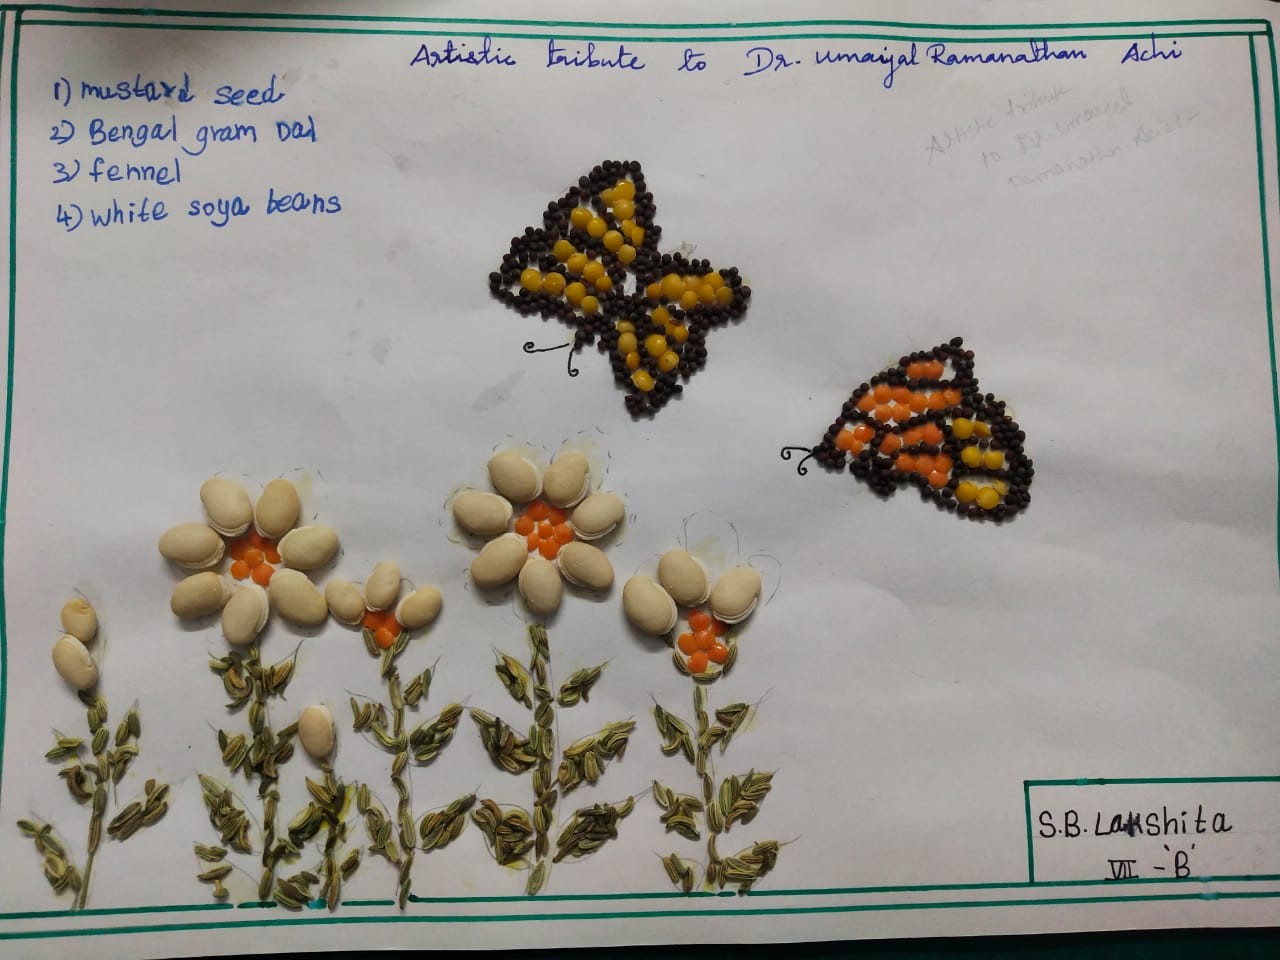 Artistic tribute to Dr. Umaiyal Ramanathan Achi
1) mustard seed
2) Bengal gram Dal
3) fennel
4) white soya beans
Artistic tribute
to Dr. Umayal
Ramanathan
S.B. Lakshita
VII - 'B'